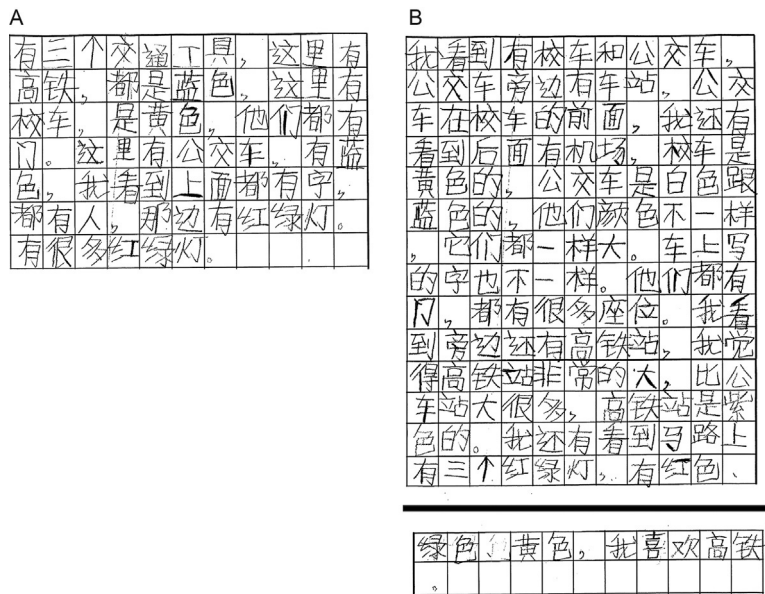 A
有三个交通工具，这里有
高铁，都是蓝色，这里有
校车，是黄色，他们都有
门。这里有公交车，有蓝
色，我看到上面都有字，
都有人，那边有红绿灯。
有很多红绿灯。
B
我看到有校车和公交车，
公交车旁边有车站，公交
车在校车的前面，我还有
看到后面有机场，校车是
黄色的，公交车是白色跟
蓝色的，他们颜色不一样
，它们都一样大。车上写
的字也不一样。他们都有
门，都有很多座位。我看
到旁边还有高铁站，我觉
得高铁站非常的大，比公
车站大很多，高铁站是紫
色的。我还有看到马路上
有三个红绿灯，有红色、
绿色、黄色，我喜欢高铁
。